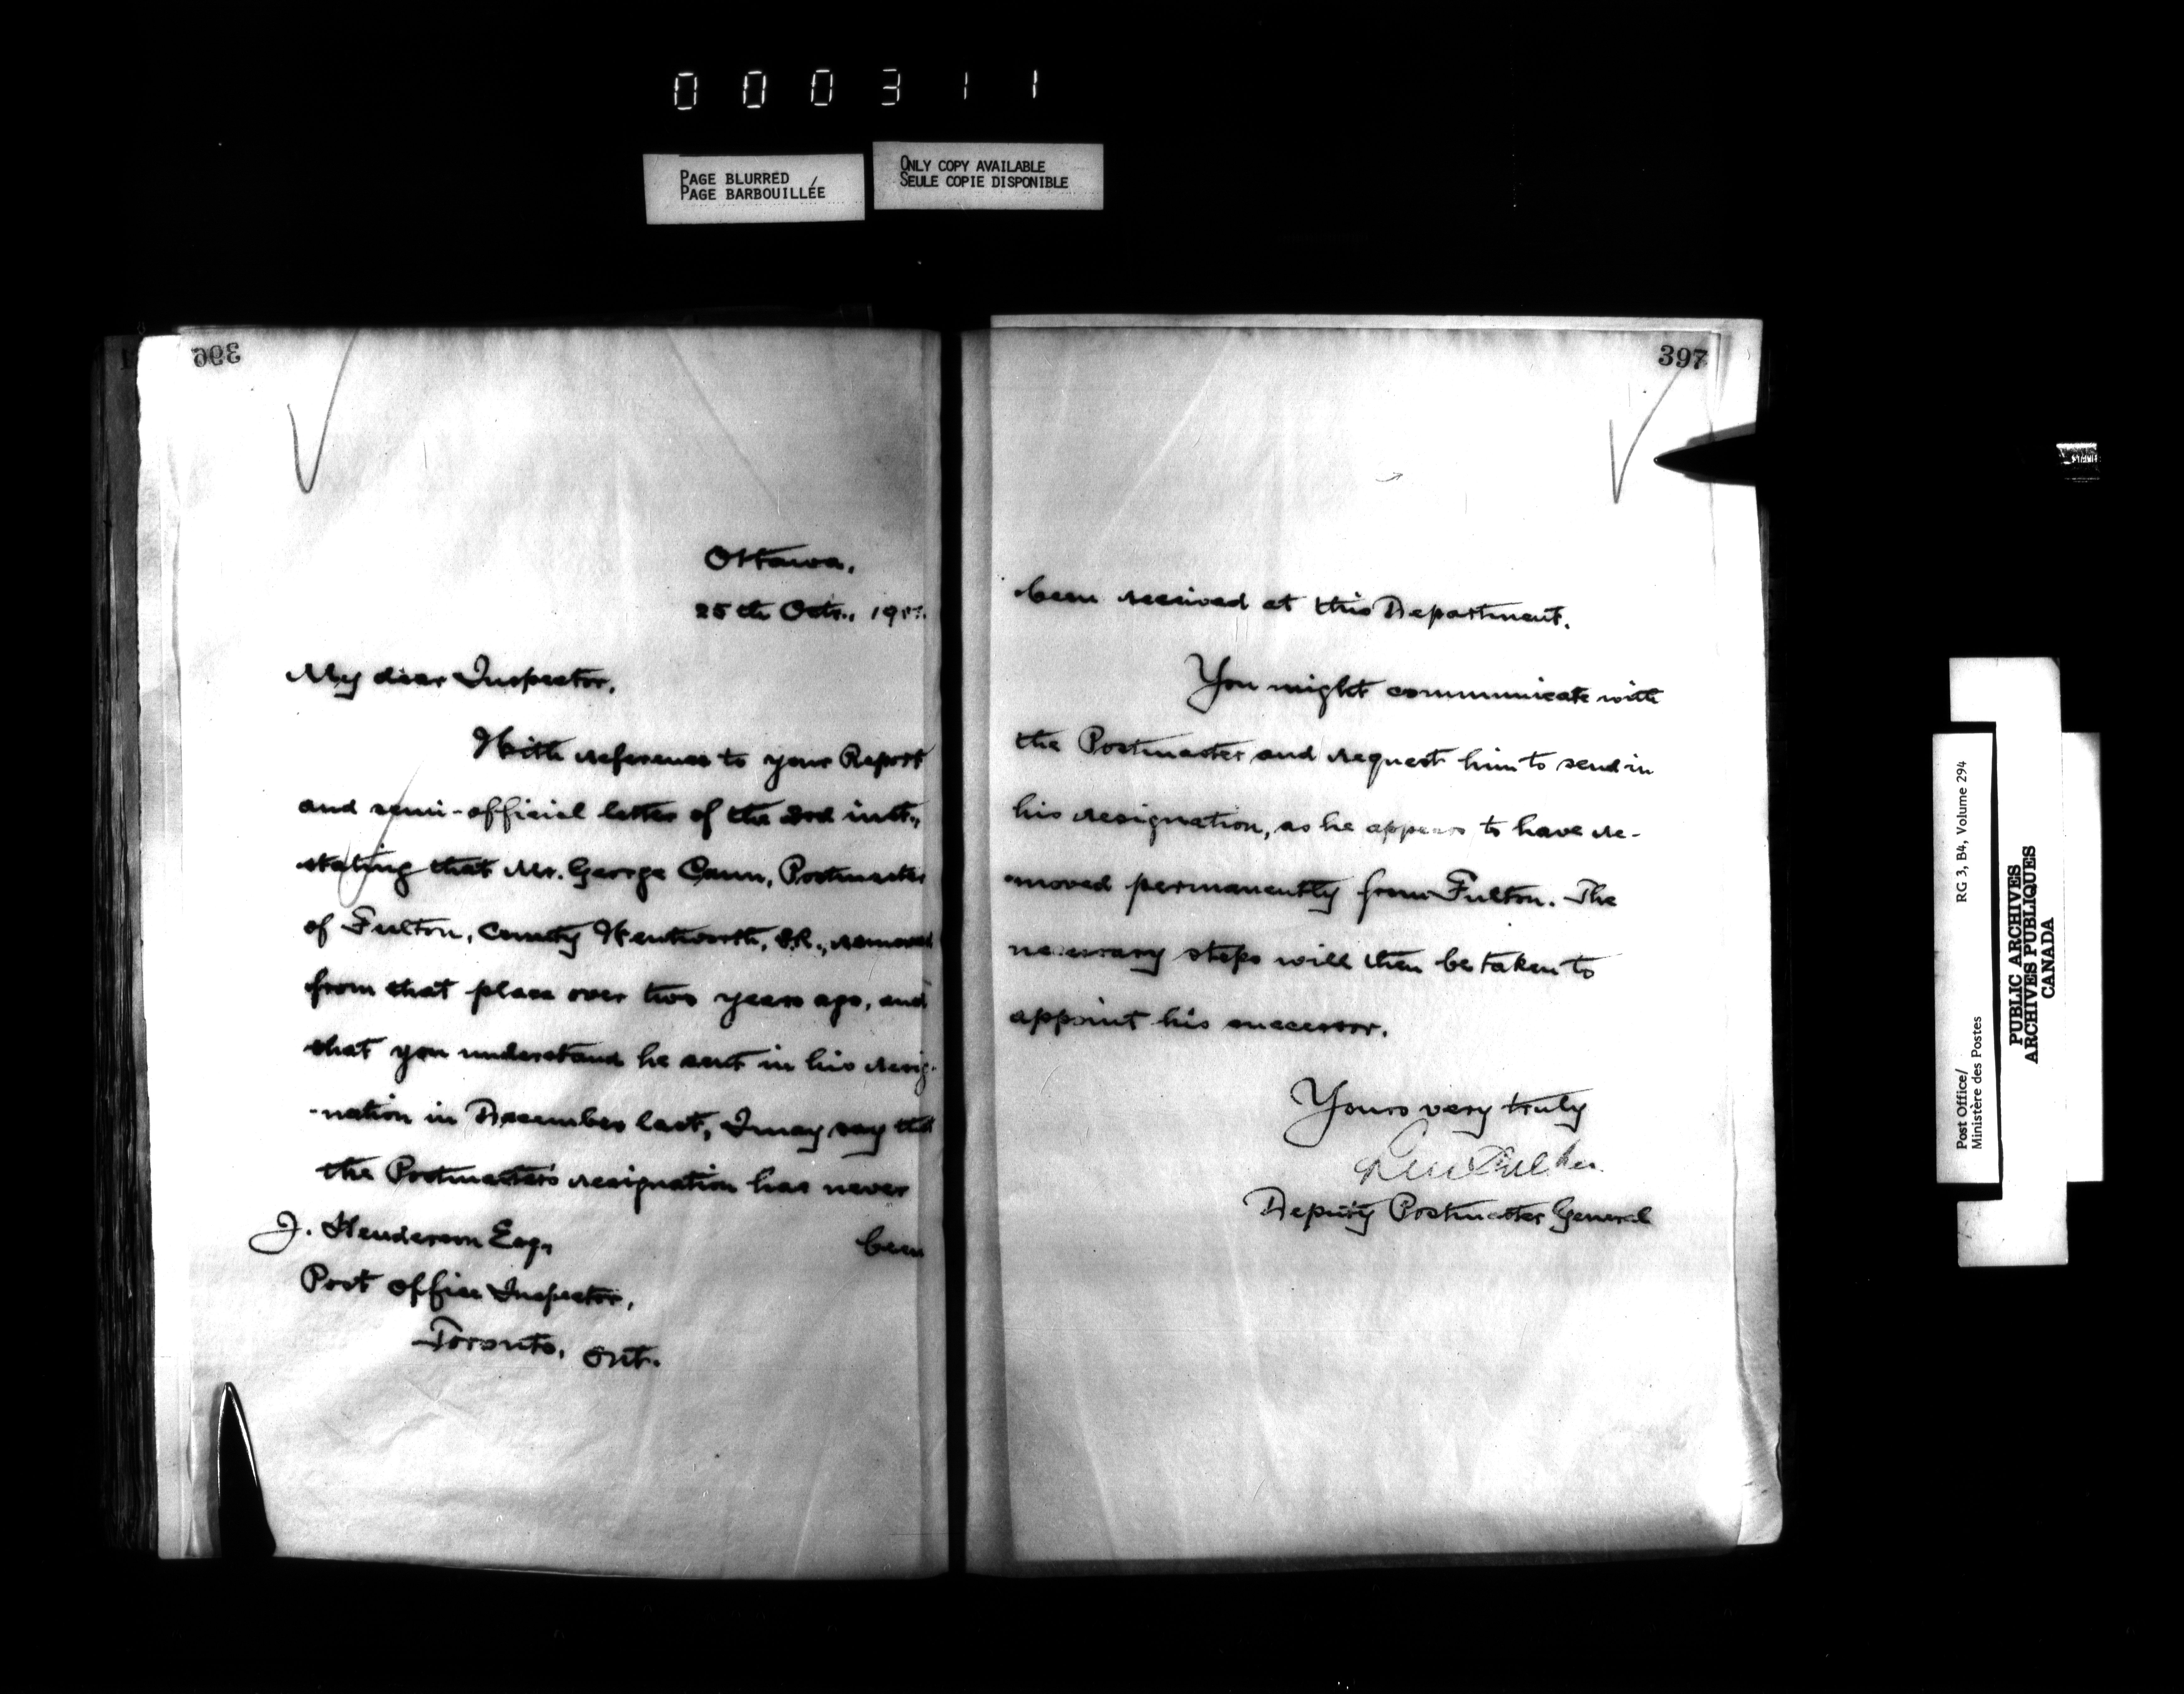 000311
PAGE BLURRED
PAGE BARBOUILLÉE
ONLY COPY AVAILABLE
SEULE COPIE DISPONIBLE
396
Ottawa,
25th Octr., 190
My dear Inspector,
With reference to your Report
and semi-official letter of the inst.,
stating that Mr. George Cann, Postmaster
of Fulton, County Wentworth, S.R., removed
from that place over two years ago, and
that you understand he sent in his resig-
-nation in December last, I may say that
the Postmaster's resignation has never
J. Henderson Esq,
been
Post Office Inspector,
Toronto, Ont.
397
been received at this Department.
You might communicate with
the Postmaster and request him to send in
his resignation, as he appears to have re-
-moved permanently from Fulton. The
necessary steps will then be taken to
appoint his successor.
Yours very truly
Deputy Postmaster General
Post Office/
Ministère des Postes
RG 3, B4, Volume 294
PUBLIC ARCHIVES
ARCHIVES PUBLIQUES
CANADA